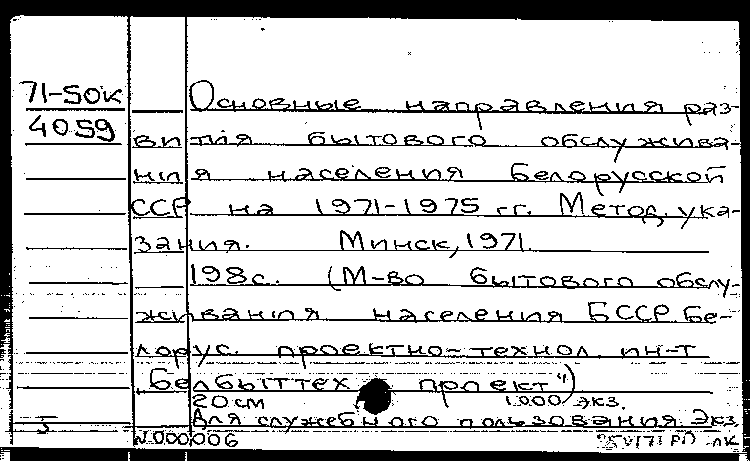 71-50к
4059
Основные направления раз-
вития бытового обслужива-
ния населения Белорусской
ССР на 1971-1975 гг. Метод. ука-
зания. Минск, 1971.
198с. (М-во бытового обслу-
живания населения БССР. Бе-
лорус. проектно-технол. ин-т
„Белбыттехпроект")
20 см 1.000 экз.
Для служебного пользования. Экз.
N.000006